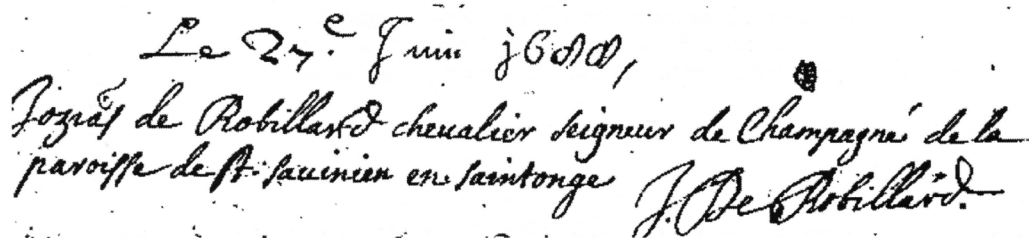 Le 27.e Juin j688,
Joziaś de Robillard chevalier seigneur de Champagné de la
paroisse de St. sauinien en saintonge
J. De Robillard.